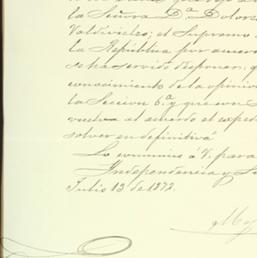 la Señora Dª Dolores
Valdivielso; el Supremo
la República por acuerdo
se ha servido disponer: q
conocimiento de la opinión
la Seccion 6ª que en
vuelva al acuerdo el exped
solver en definitiva
Lo comunico á V. para
Independencia y
Julio 13 de 1872.